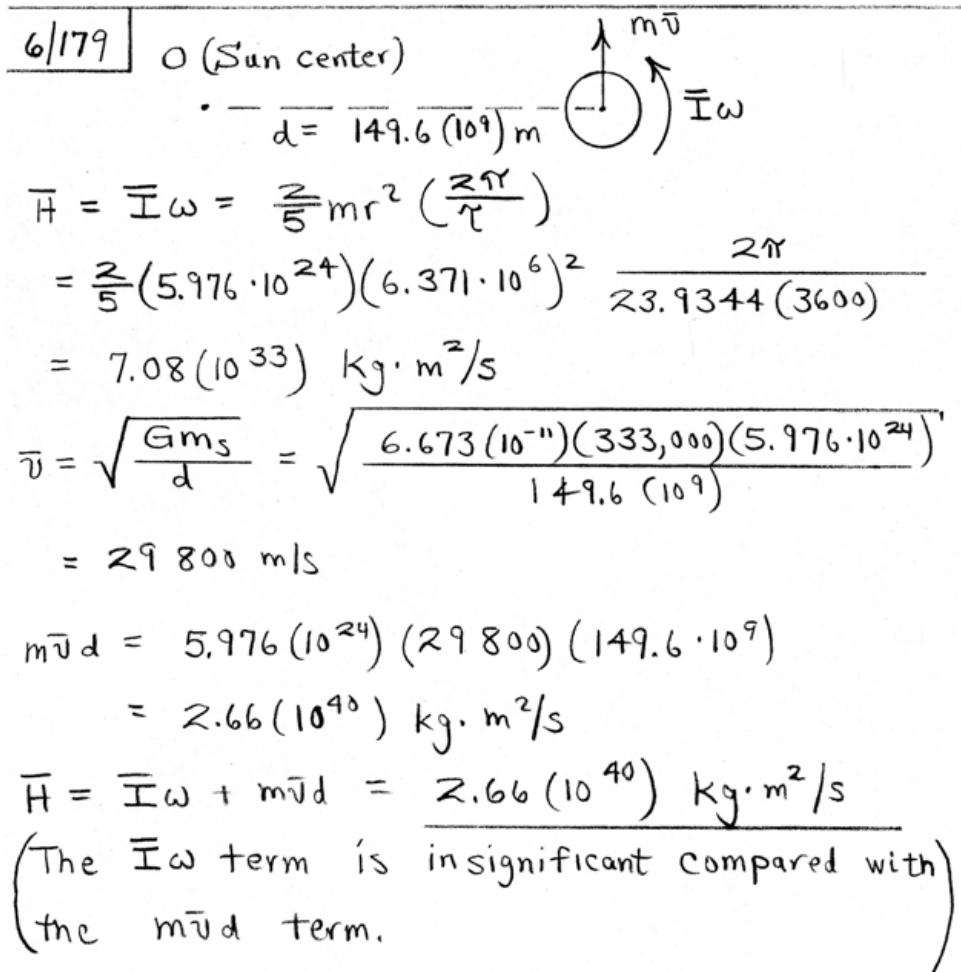 6/179
O (Sun center)
mv̄
d = 149.6 (10⁹) m
Īω
H̄ = Īω = 2/5 mr² (2π/τ)
= 2/5 (5.976·10²⁴)(6.371·10⁶)² 2π/23.9344(3600)
= 7.08(10³³) kg·m²/s
v̄ = √(Gmₛ/d) = √(6.673(10⁻¹¹)(333,000)(5.976·10²⁴)/149.6(10⁹))
= 29 800 m/s
mv̄d = 5.976(10²⁴)(29 800)(149.6·10⁹)
= 2.66(10⁴⁰) kg·m²/s
H̄ = Īω + mv̄d = 2.66(10⁴⁰) kg·m²/s
(The Īω term is insignificant compared with
the mv̄d term.)